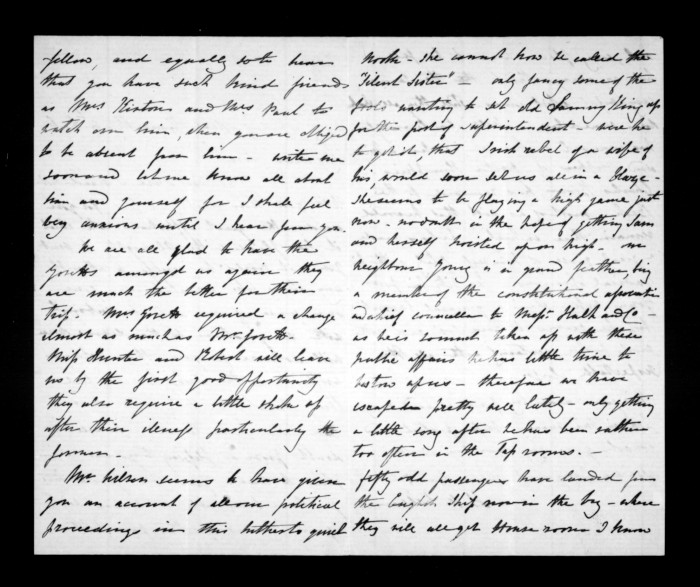 fellow, and equally so to hear
that you have such kind friends
as Mrs and Mrs Paul to
watch over him, when you are obliged
to be absent from him - write me
soon and let me know all about
him and yourself for I shall feel
very anxious until I hear from you.
We are all glad to have the
amongst us again they
are much the better for their
trip. Mrs required a change
almost as much as Mr
Miss Hunter and will leave
us by the first good opportunity
they also require a little shake up
after their illness particularly the
former.
Mr. seems to have given
you an account of all our political
proceedings in this hitherto quiet
nook - she cannot now be called the
"Silent Sister" - only fancy some of the
fools wanting to set old Sammy King up
for the post of Superintendent - were he
to get it, that Irish rebel of a wife of
his, would soon set us all in a blaze -
She seems to be playing a high game just
now - no doubt in the hope of getting Sam
and herself hoisted up on high - our
neighbour Young is in grand feather, being
a member of the constitutional association
and chief counsellor to Messrs. and Co -
as he is so much taken up with these
public affairs he has little time to
bestow upon us - therefore we have
escaped pretty well lately - only getting
a little song after he has been rather
too often in the Tap rooms. -
fifty odd passengers have landed from
the English Ship now in the bay - where
they will all get House room I know